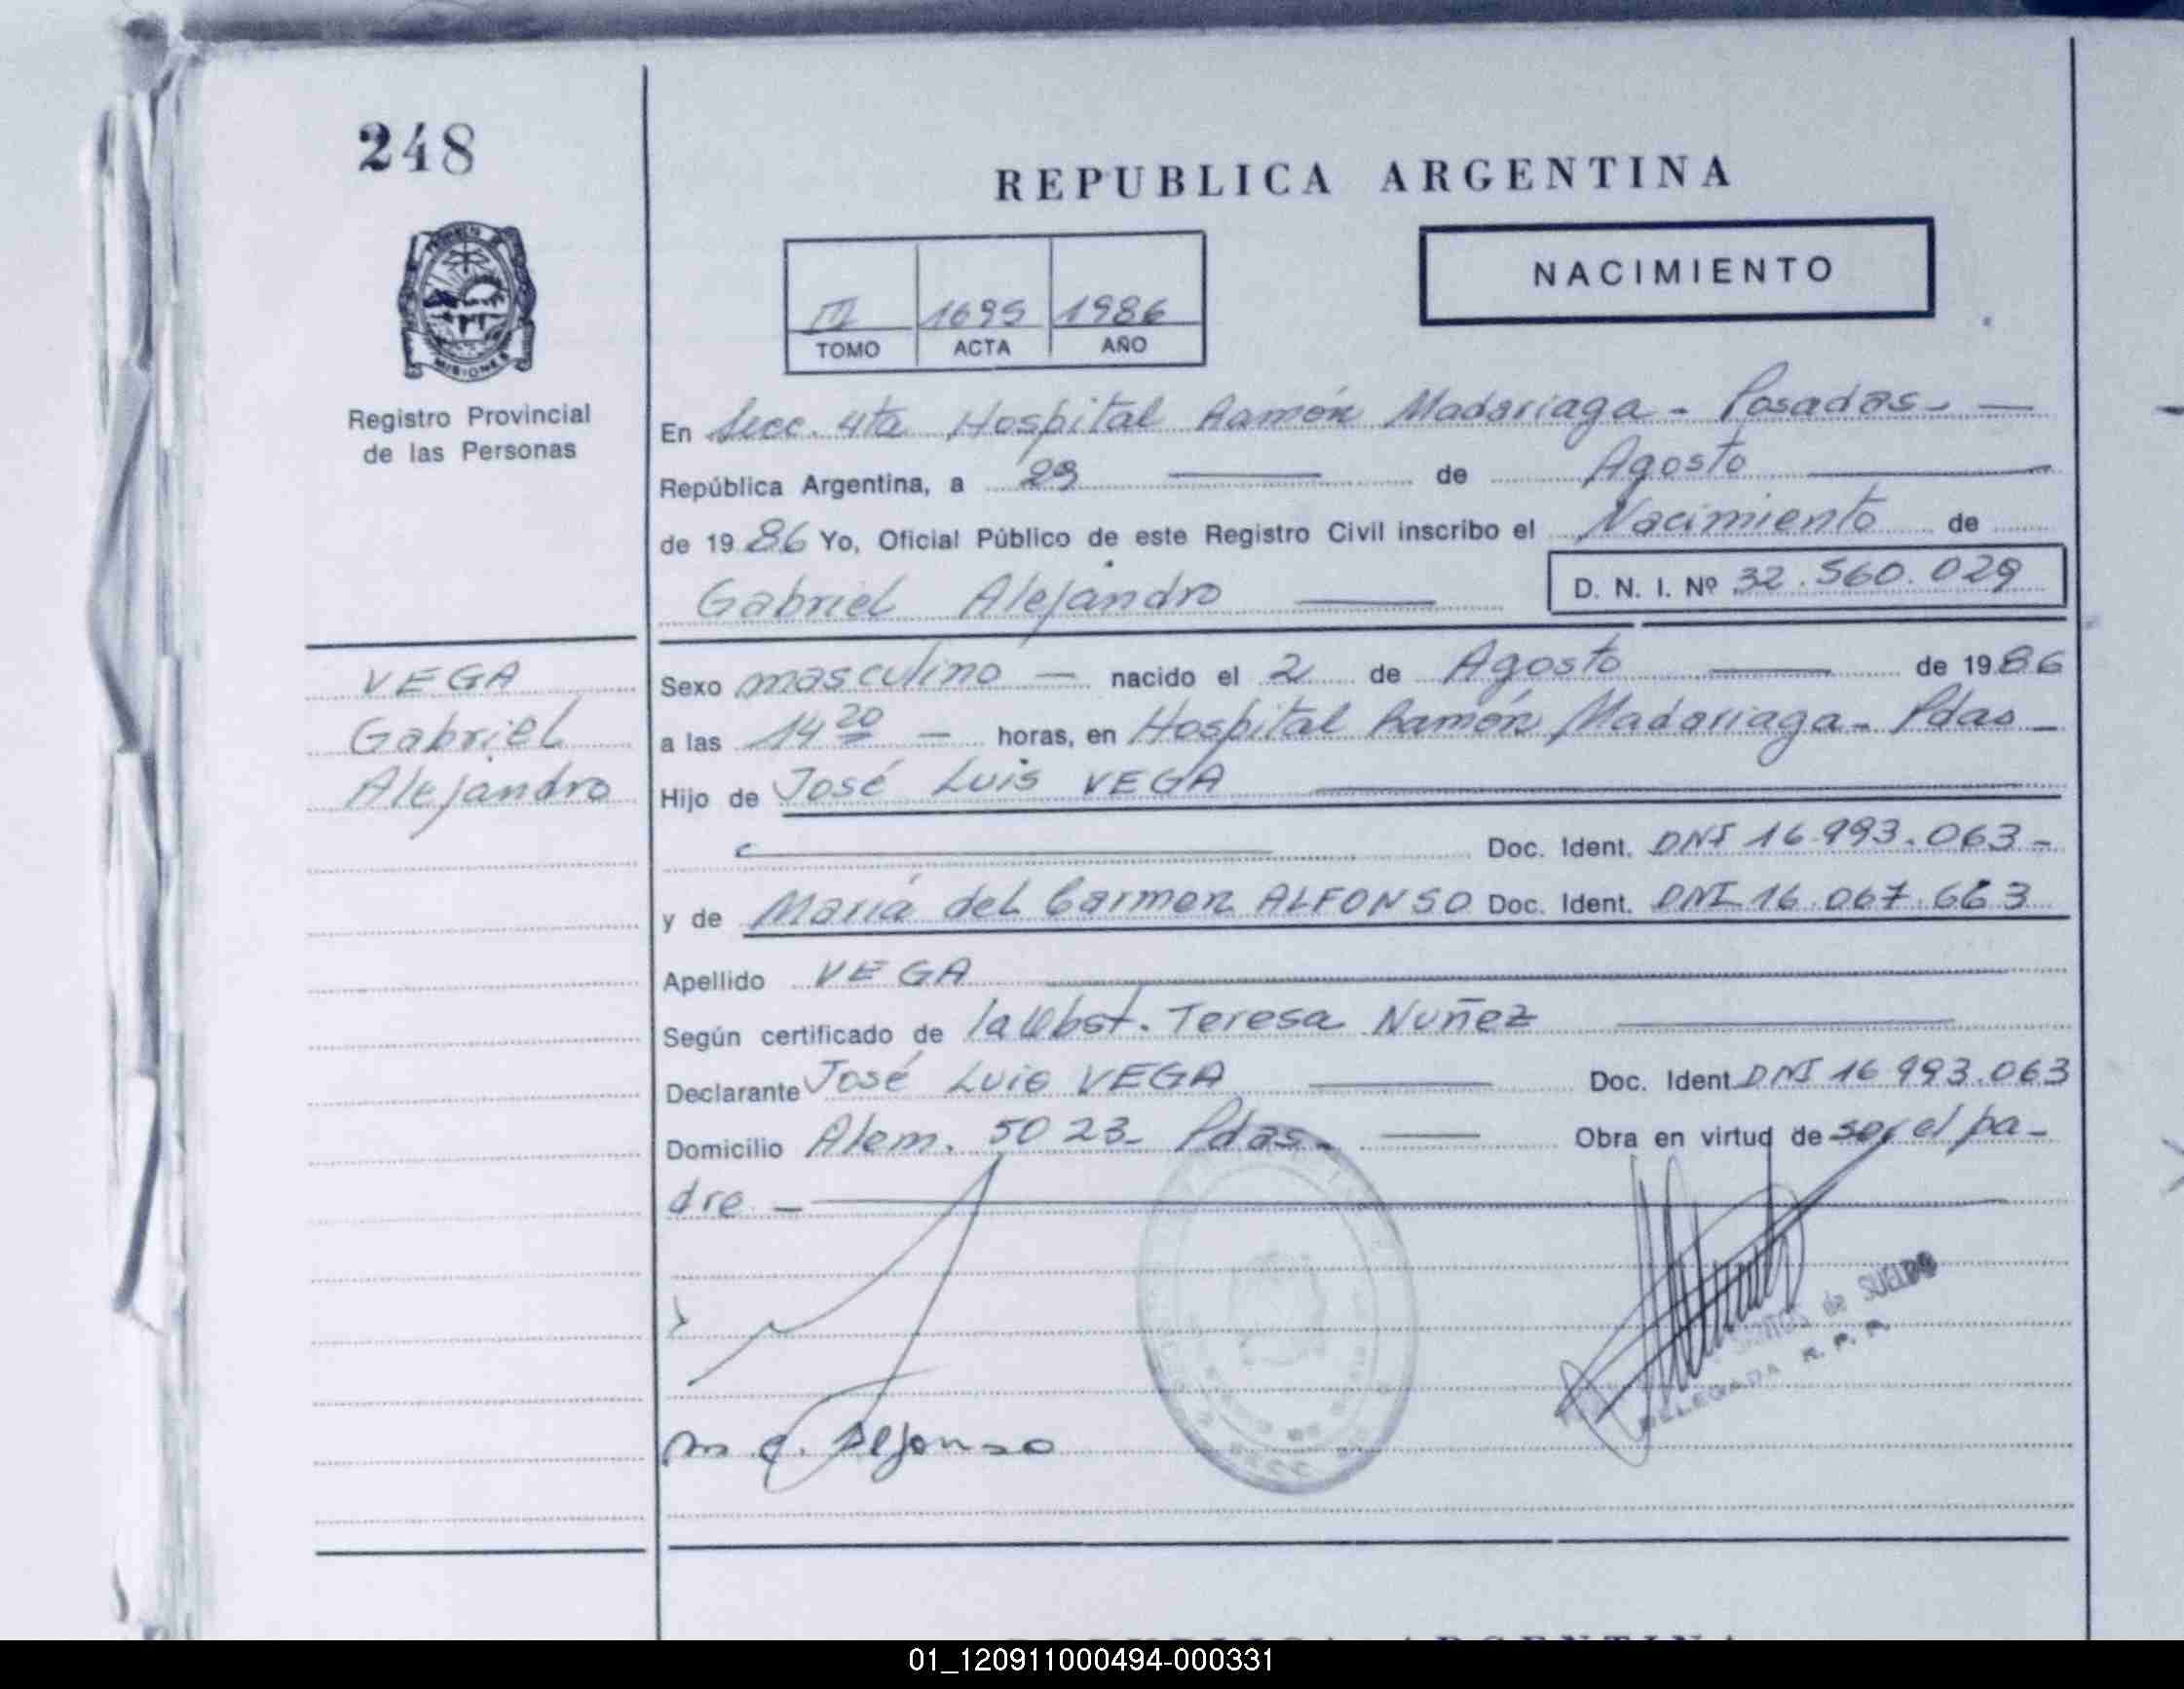 248
REPUBLICA ARGENTINA
NACIMIENTO
III 1695 1986
TOMO ACTA AÑO
MISIONES
Registro Provincial
de las Personas
En Secc. 4ta Hospital Ramón Madariaga - Posadas -
República Argentina, a 29 de Agosto
de 1986 Yo, Oficial Público de este Registro Civil inscribo el Nacimiento de
Gabriel Alejandro D. N. I. Nº 32.560.029
VEGA
Gabriel
Alejandro
Sexo masculino - nacido el 2 de Agosto de 1986
a las 14 20 - horas, en Hospital Ramón Madariaga - Pdas -
Hijo de José Luis VEGA
Doc. Ident. DNI 16.993.063 -
y de María del Carmen ALFONSO Doc. Ident. DNI 16.067.663
Apellido VEGA
Según certificado de la Obst. Teresa Nuñez
Declarante José Luis VEGA Doc. Ident DNI 16.993.063
Domicilio Alem. 5023 - Pdas - Obra en virtud de ser el pa-
dre. -
de SUELDO
DELEGADA R. P. P.
m c. Alfonso
REPUBLICA ARGENTINA
01_120911000494-000331